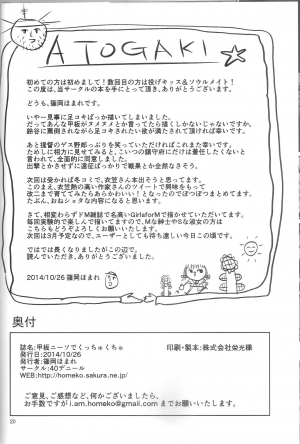 ATOGAKI
初めての方は初めまして！数回目の方は投げキッス&ソウルメイト！
この度は、当サークルの本を手にとって頂き、ありがとうございます。
どうも、篠岡ほまれです。
いやー見事に足コキばっか描いてしまいました。
だってあんな甲板がヌメヌメとか言ってたら描くしかないじゃないですか。
鈴谷に罵倒されながら足コキされたい欲が満たされて頂ければ幸いです。
あと提督のゲス野郎っぷりを笑っていただければこれまた幸いです。
ために相方に見せてみると、こいつの鎮守府にだけは着任したくないと
言われて、全面的に同意しました。
出撃とかさせずに遠征ばっかりで戦果とか全然なさそう。
次回は受かれば冬コミで、衣笠さん本出そうと思ってます。
このまえ、衣笠勢の高い作家さんのツイートで興味をもって
改二まで育ててみたらあらかわいい！となったのでぼつぼつまとめてます。
たぶん、おねショタな内容になると思います。
さて、相変わらずドM雑誌で名高いGirlsforMで描かせていただいてます。
毎回実験的で楽しんで描いてますので、Mな紳士やSな淑女の方は
こちらもどうぞよろしくお願いいたします。
次回は3月予定なので、ユーザーとしても待ち遠しい今日この頃です。
ではでは長くなりましたがこの辺で。
読んでいただき、ありがとうございました。
2014/10/26 篠岡ほまれ
奥付
誌名:甲板ニーソでくっちゅくちゅ
印刷・製本:株式会社栄光様
発行日:2014/10/26
発行者:篠岡ほまれ
サークル:40デニール
WEB:http://homeko.sakura.ne.jp/
ご意見、ご感想など、何かございましたら、
お手数ですがi.am.homeko@gmail.comまでお願いいたします。
20